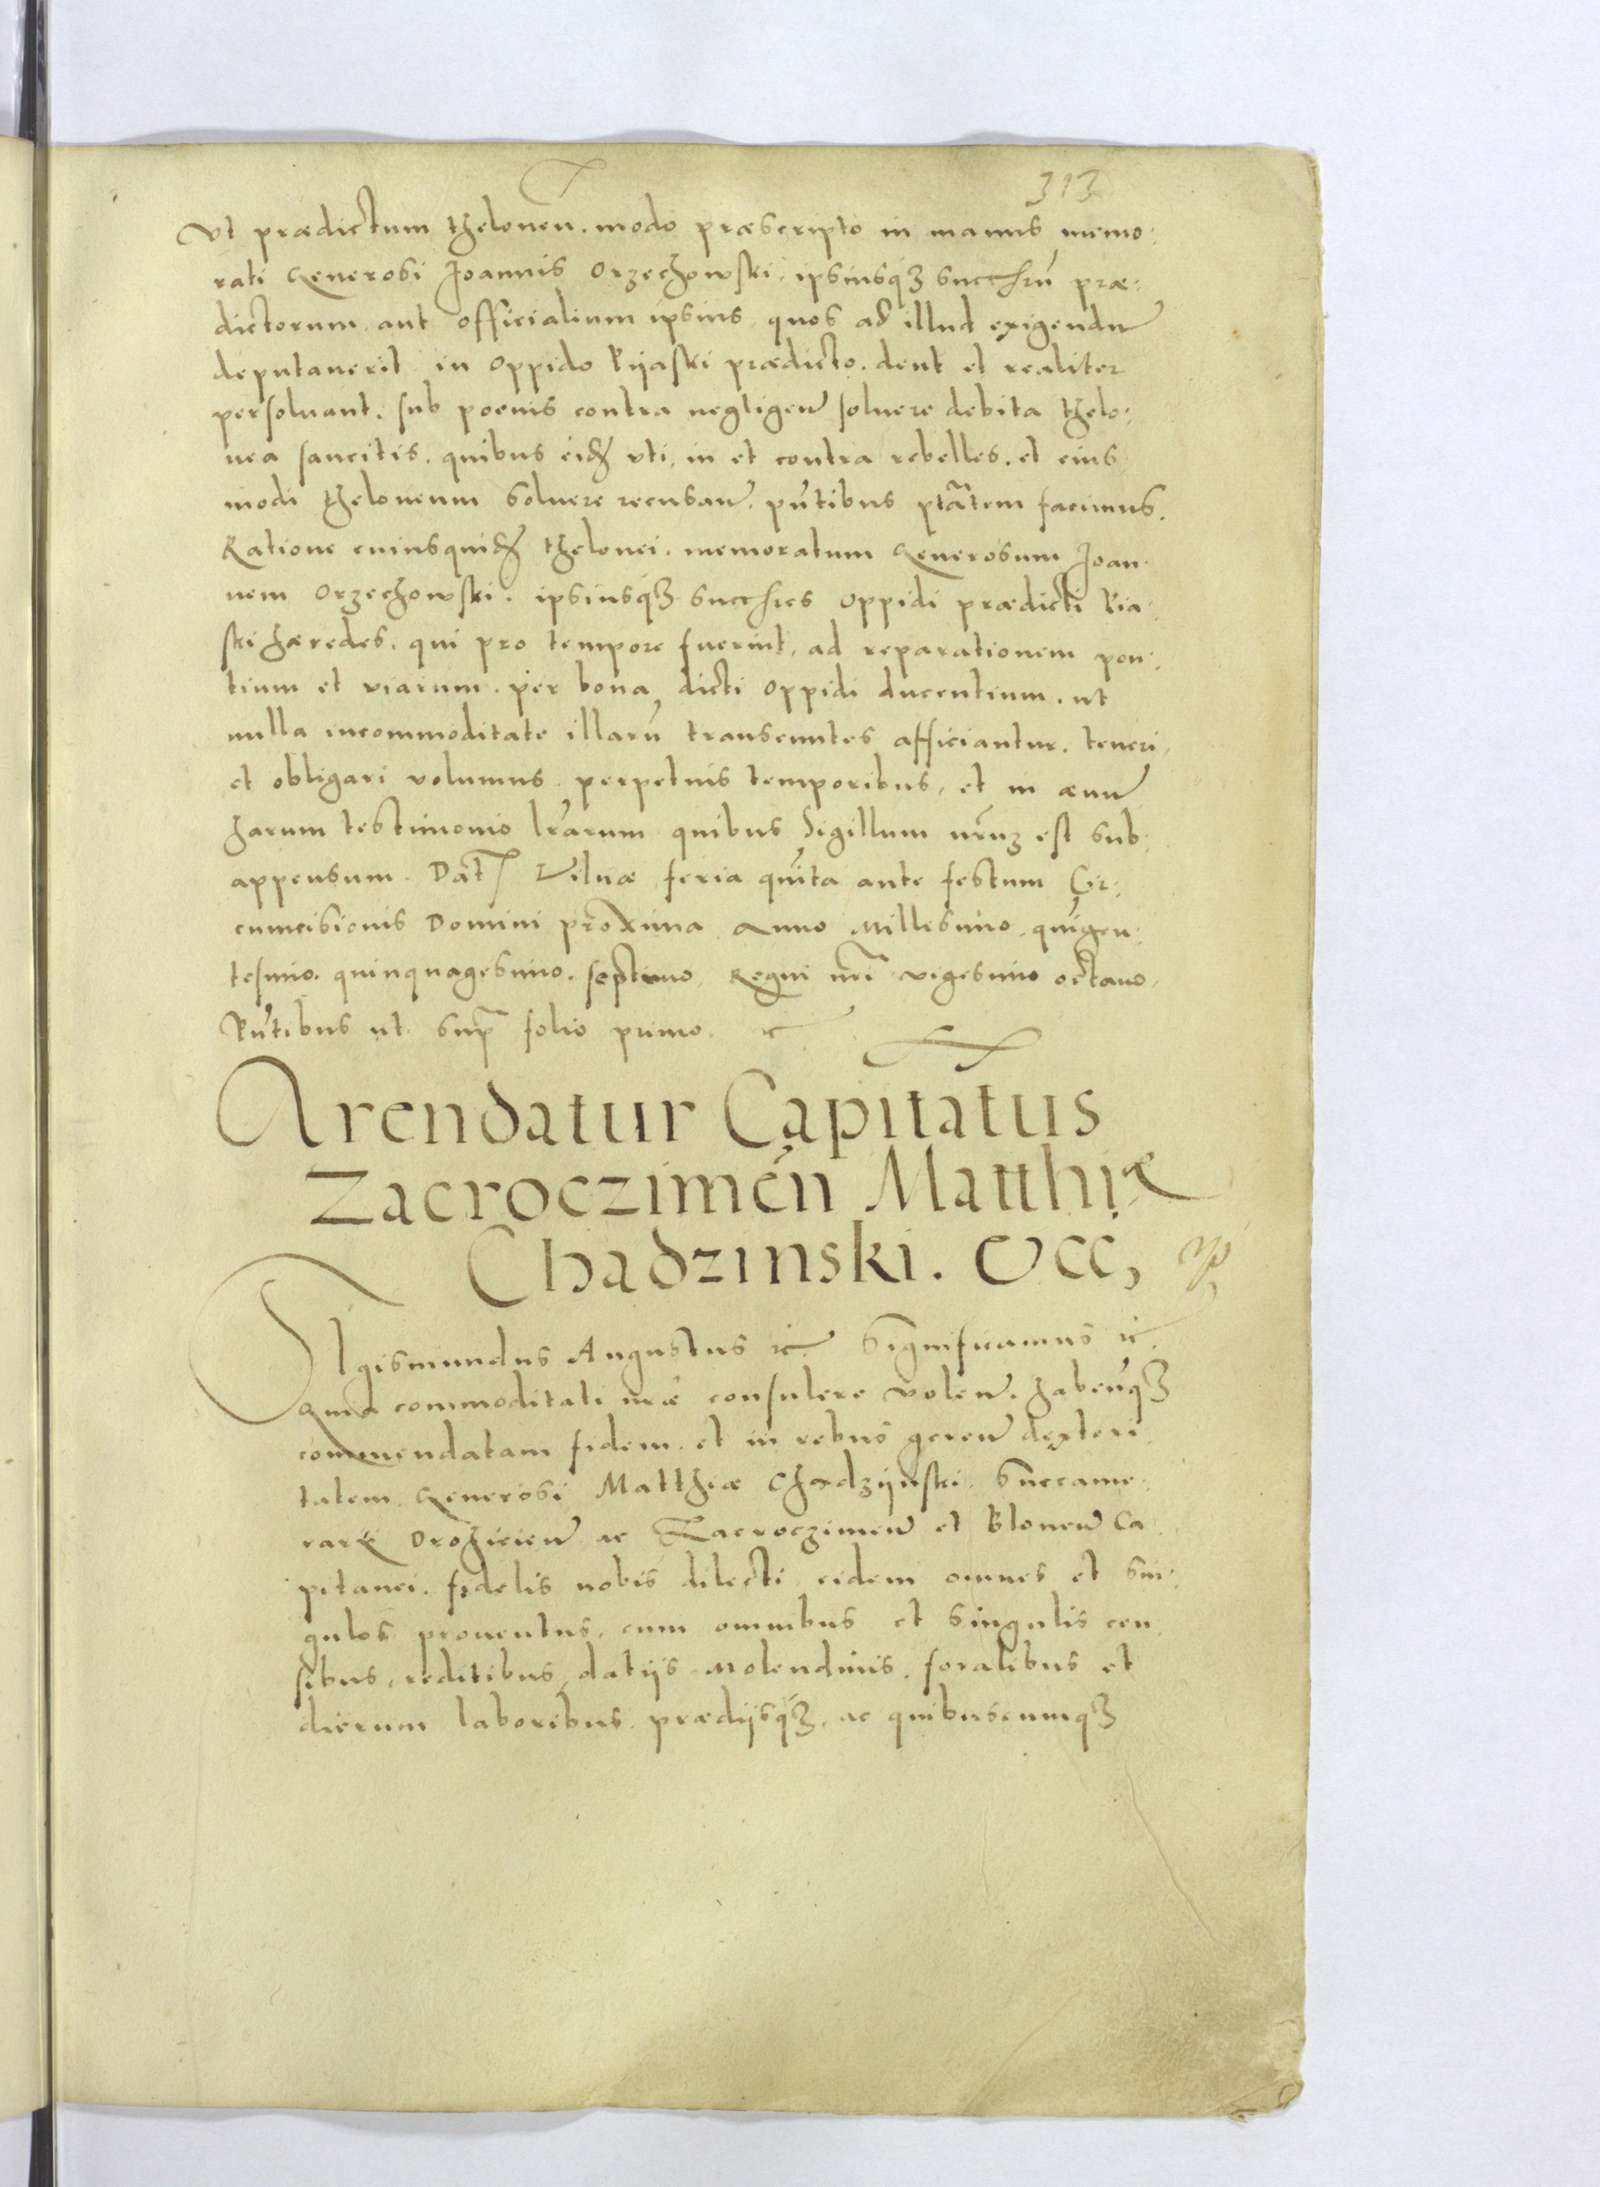 313
Vt prædictum theloneu. modo præscripto in manus memo:
rati Generosi Joannis Orzechowski, ipsiusq₃ succꝭrū præ:
dictorum, aut officialium ipsius, quos ad illud exigendu
deputauerit in oppido Piiaski prædicto, dent et realiter
persoluant, sub poenis contra negligen̄ soluere debita thelo:
nea sancitis, quibus eid₃ vti, in et contra rebelles, et eius
modi theloneum soluere recusan̄, pn̄tibus ptātem facimus.
Ratione cuiusquid₃ thelonei, memoratum Generosum Joan
nem Orzechowski, ipsiusq₃ succꝭres oppidi prædicti Pia:
ski hæredes, qui pro tempore fuerint, ad reparationem pon:
tium et viarum, per bona dicti oppidi ducentium, ut
nulla incommoditate illarū transeuntes afficiantur, teneri,
et obligari volumus perpetuis temporibus, et in æuū
harum testimonio lr̄arum quibus Sigillum nr̄ū₃ est sub:
appensum. Dat̄ Vilnæ feria qūita ante festum Cir:
cumcisionis Domini proxima Anno Millesimo, qūigen:
tesimo, quinquagesimo, septimo, Regni nr̄i vigesimo octauo,
Pn̄tibus ut sup̄ folio primo. ꝛc
Arendatur Capitatus
Zacroczimen̄ Matthiæ
Chadzinski. Occ,
SIgismundus Augustus ꝛc Significamus ꝛc.
Quia commoditati nr̄æ consulere volen̄, haben̄q₃
commendatam fidem, et in rebus geren̄ dexteri
tatem, Generosi Matthiæ Chadzijnski, Succame
rarij Drohicien̄ ac Zacroczimen̄ et Blonen̄ Ca
pitanei, fidelis nobis dilecti, eidem omnes et sin:
gulos prouentus, cum omnibus et singulis cen
sibus, reditibus, datijs, Molendinis, foralibus et
dierum laboribus, prædijsq₃, ac quibuscumq₃